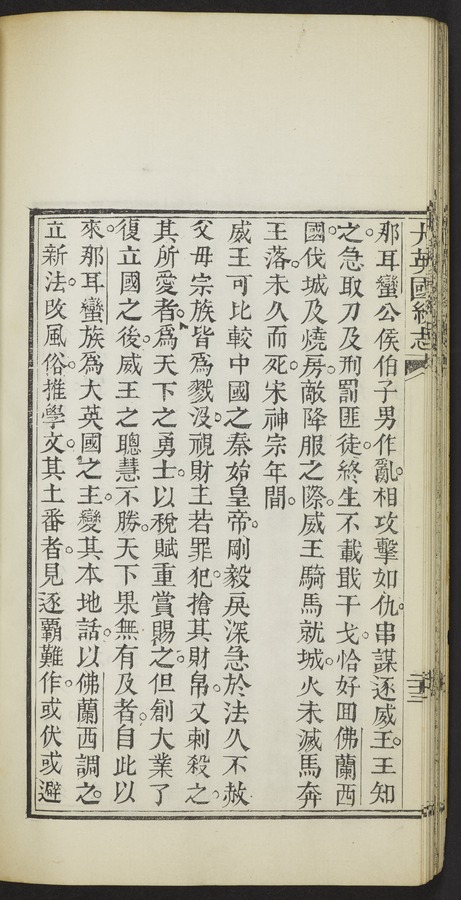 大英國統志
二十三
那耳蠻公侯伯子男作亂。相攻擊如仇。串謀逐威王。王知
之。急取刀及刑罰匪徒。終生不載戢干戈。恰好回佛蘭西
國。伐城及燒房。敵降服之際。威王騎馬就城。火未滅。馬奔
王落。未久而死。宋神宗年間。
威王可比較中國之秦始皇帝。剛毅戾深。急於法久不赦
父母宗族皆爲戮沒。視財主若罪犯。搶其財帛。又刺殺之。
其所愛者。爲天下之勇士。以稅賦重賞賜之。但創大業了
復立國之後。威王之聰慧不勝。天下果無有及者。自此以
來。那耳蠻族爲大英國之主。變其本地話。以佛蘭西調之。
立新法。改風俗。推學文。其土番者。見逐霸難作。或伏或避